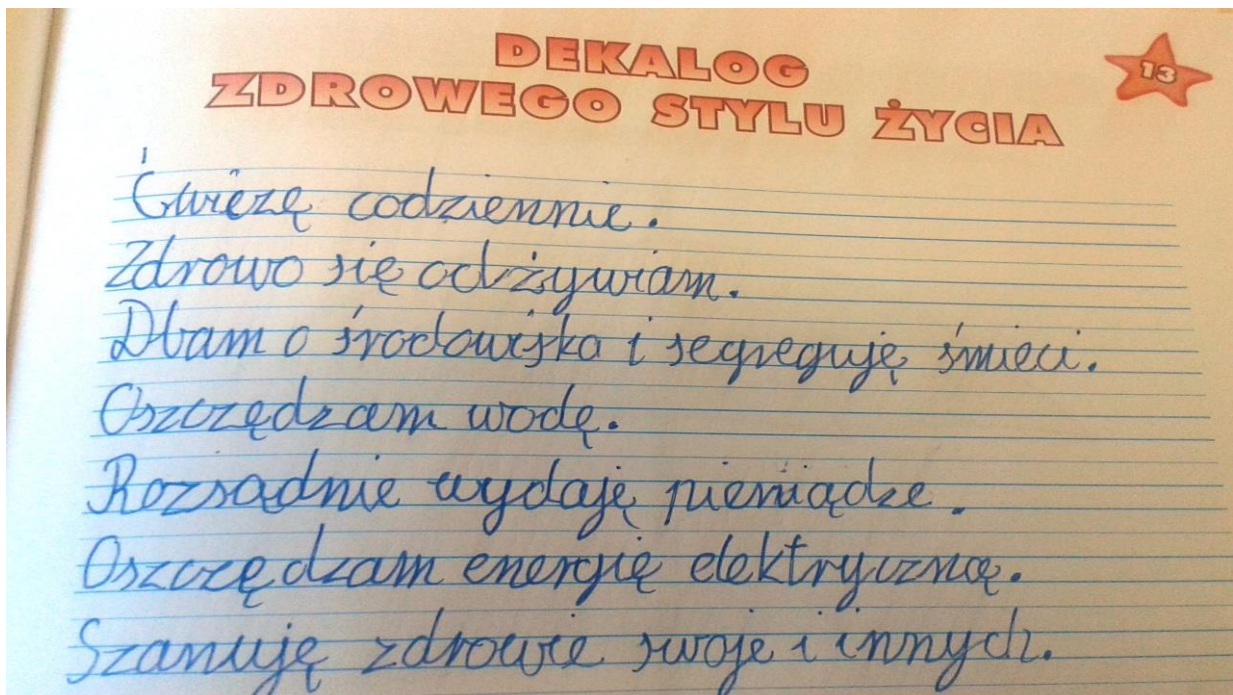 DEKALOG
ZDROWEGO STYLU ŻYCIA
13
Ćwiczę codziennie.
Zdrowo się odżywiam.
Dbam o środowiska i segreguję śmieci.
Oszczędzam wodę.
Rozsądnie wydaję pieniądze.
Oszczędzam energię elektryczną.
Szanuję zdrowie swoje i innych.